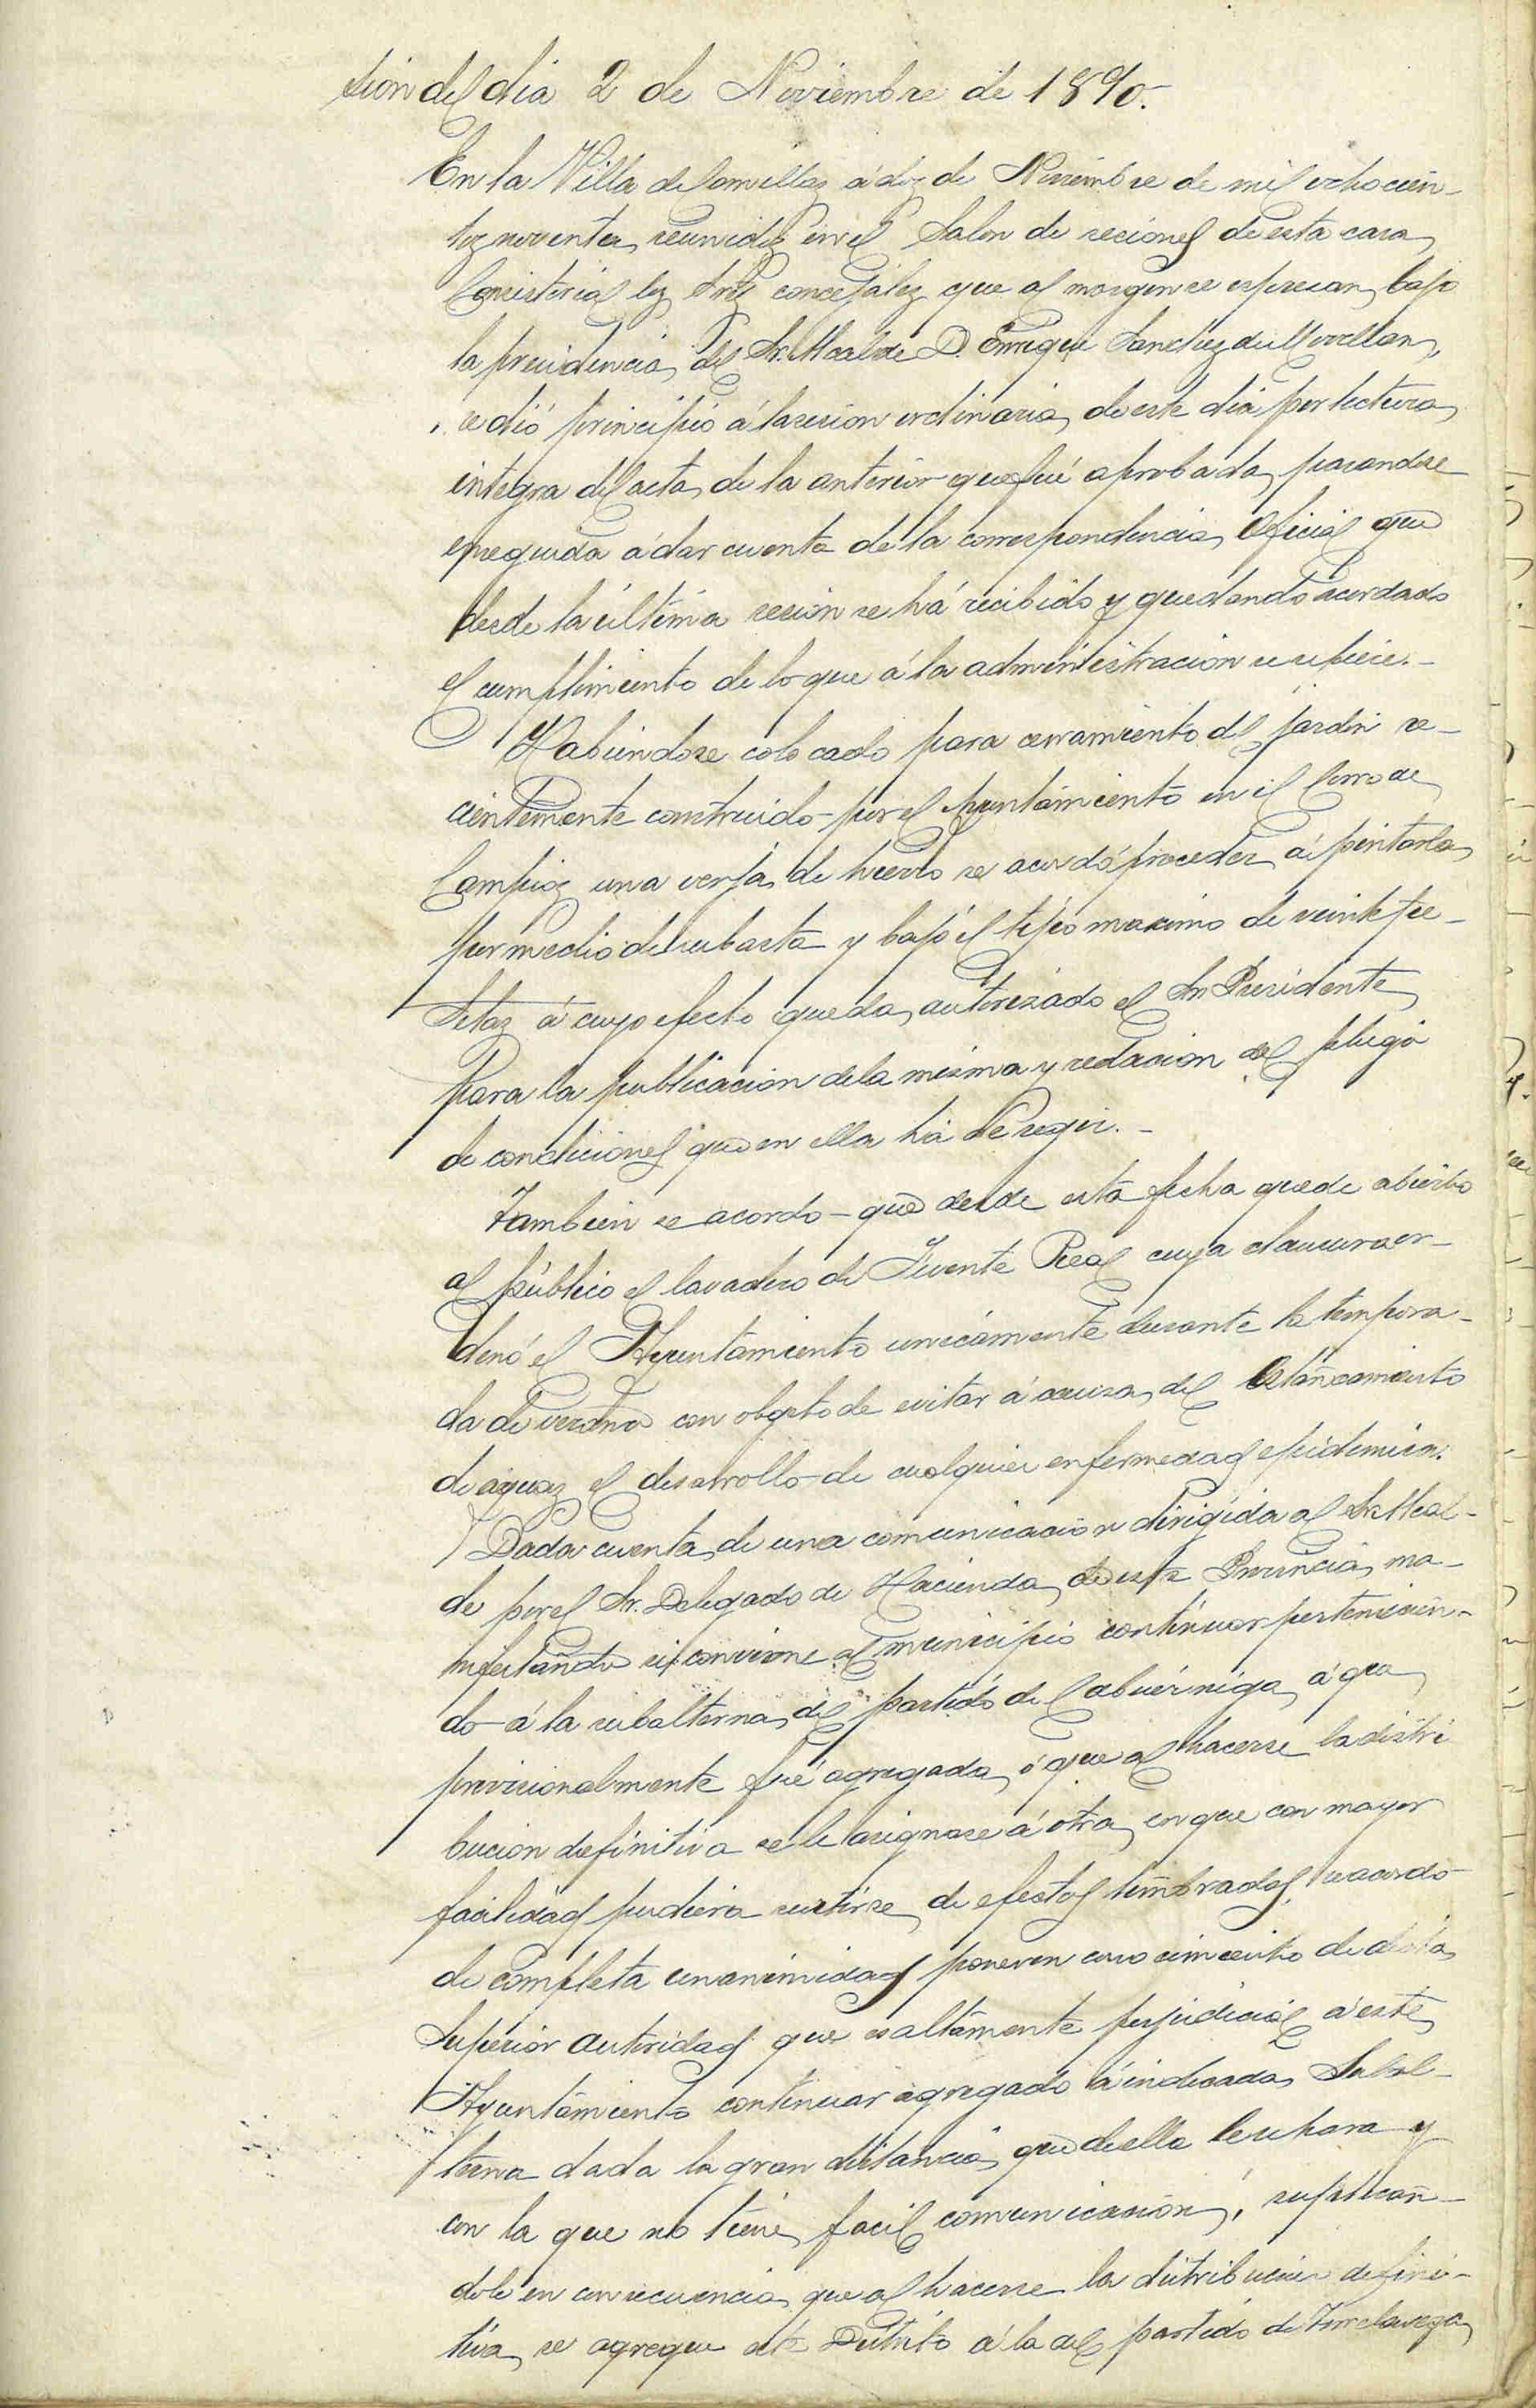 sión del dia 2 de Noviembre de 1890.
En la Villa de Comillas á dos de Noviembre de mil ochocien-
tos noventa, reunidos en el Salon de seciones de esta casa
Consistorial los Sres concejales que al margen se espresan, bajo
la presidencia del Sr. Alcalde D. Enrique Sanchez de Movellan,
se dió principio á la sesion ordinaria de este dia por lectura
integra del acta de la anterior que fué aprobada, pasandose
enseguida á dar cuenta de la correspondencia Oficial que
desde la última sesion se há recibido y quedando acordado
el cumplimiento de lo que á la administración se refiere.-
Habiendose colocado para cerramiento del jardin re-
cientemente construido por el Ayuntamiento en el Corro de
Campios una verja de hierro se acordó proceder á pintarla
por medio de subasta y bajo el tipo maximo de veinte pe-
setas á cuyo efecto queda autorizado el Sr. Presidente
para la publicacion de la misma y redacion del pliego
de condiciones que en ella há de regir.-
Tambien se acordo que desde esta fecha quede abierto
al público el lavadero de Fuente Real cuya clausura or-
denó el Ayuntamiento unicamente durante la tempora-
da de verano con objeto de evitar á causa del estancamiento
de aguas el desarrollo de cualquier enfermedad epidemica.
Dada cuenta de una comunicacion dirigida al Sr. Alcal-
de por el Sr. Delegado de Hacienda de esta Provincia, ma-
nifestando si conviene al municipio continuar pertenecien-
do á la subalterna del partido de Cabuérniga á que
provisionalmente fué agregada, ó que al hacerse la distri
bucion definitiva se le asignase á otra en que con mayor
facilidad pudiera surtirse de efectos timbrados, se acordo
de completa unanimidad poner en conocimiento de dicha
Superior autoridad que es altamente perjudicial á este
Ayuntamiento continuar agregado á indicada Subal-
terna dada la gran distancia que de ella le separa y
con la que no tiene facil comunicacion, suplican-
dole en consecuencia que al hacerse la distribucion defini-
tiva, se agregue este Distrito á la del partido de Torrelavega